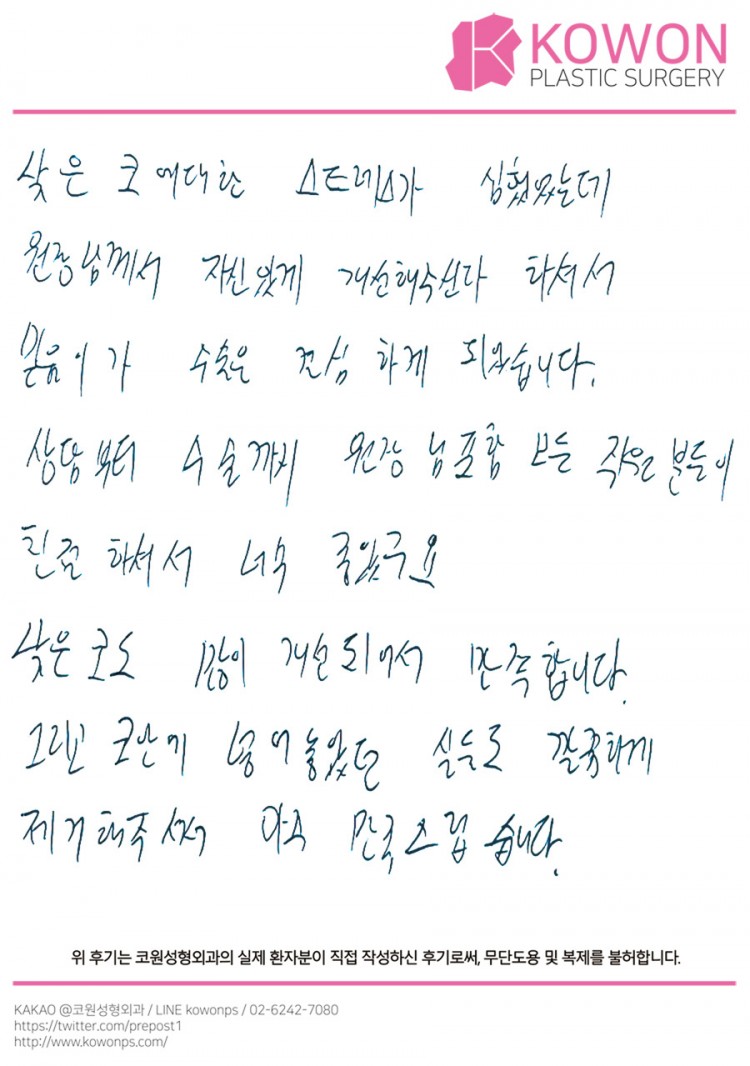 KOWON
PLASTIC SURGERY
낮은 코에대한 스트레스가 심했었는데
원장님께서 자신있게 개선해주신다 하셔서
믿음이가 수술은 결심 하게 되었습니다.
상담부터 수술까지 원장님포함 모든 직원분들이
친절 하셔서 너무 좋았구요
낮은코도 많이 개선되어서 만족합니다.
그리고 코안에 넣어놓았던 실들도 깔끔하게
제거해주셔서 아주 만족스럽습니다.
위 후기는 코원성형외과의 실제 환자분이 직접 작성하신 후기로써, 무단도용 및 복제를 불허합니다.
KAKAO @코원성형외과 / LINE kowonps / 02-6242-7080
https://twitter.com/prepost1
http://www.kowonps.com/